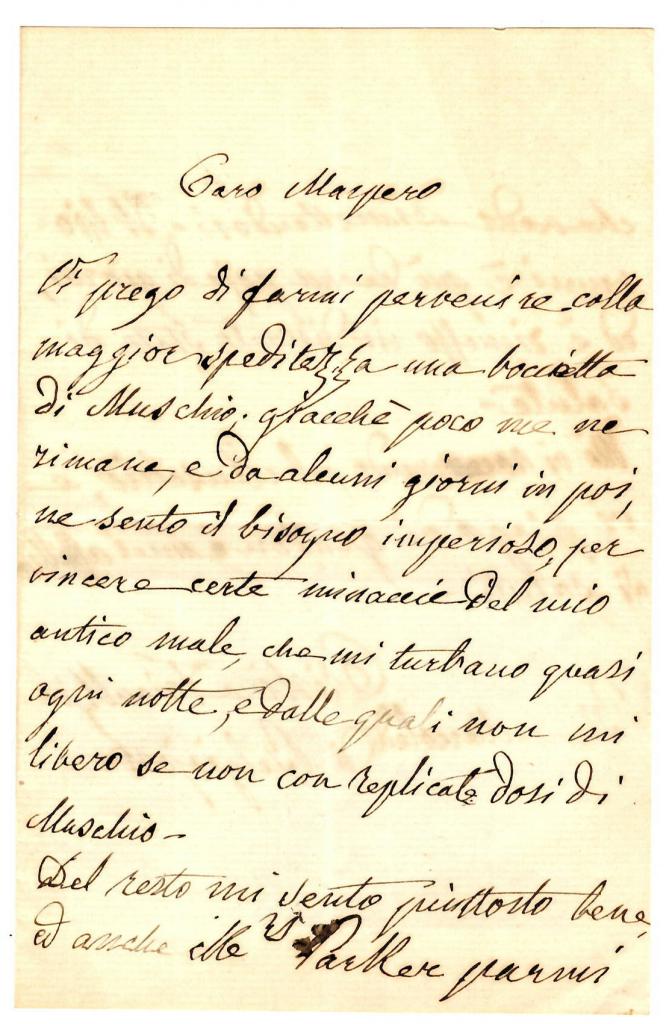 Caro Maspero
Vi prego di farmi pervenire colla
maggior speditezza una boccietta
di Muschio, giacchè poco me ne
rimane, e da alcuni giorni in poi,
ne sento il bisogno imperioso, per
vincere certe minaccie del mio
antico male, che mi turbano quasi
ogni notte, e dalle quali non mi
libero se non con replicate dosi di
Muschio –
Del resto mi sento piuttosto bene,
ed anche Mrs Parker parmi